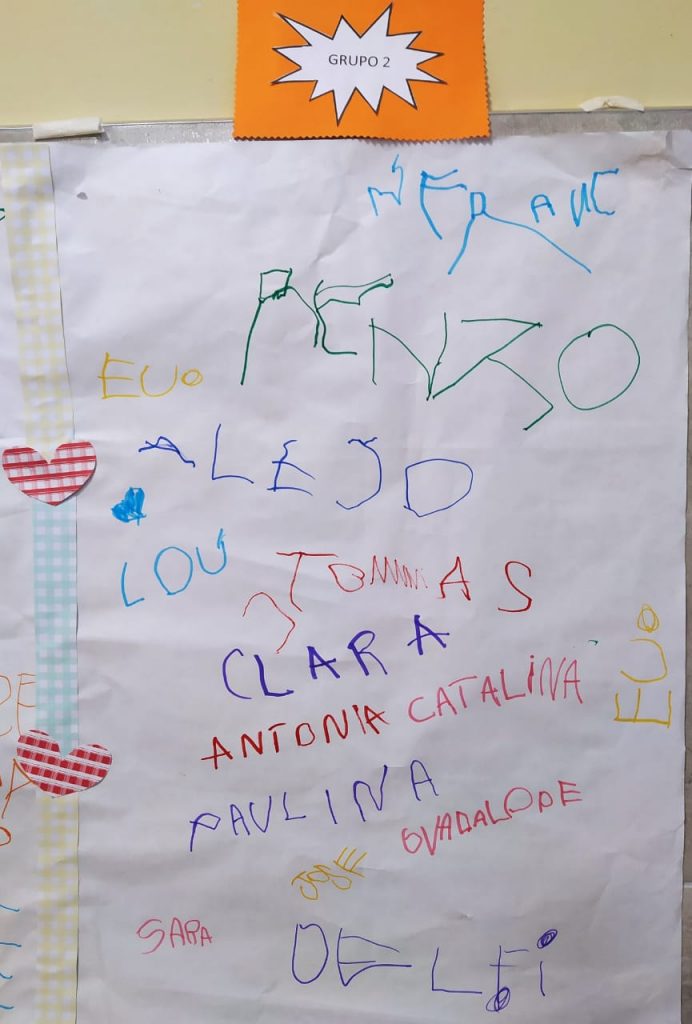 GRUPO 2
RENZO
EUO
ALEJO
LOU
TOMMAS
CLARA
EUO
ANTONIA CATALINA
PAULINA
GUADALOPE
JOSE
SARA
DELFI